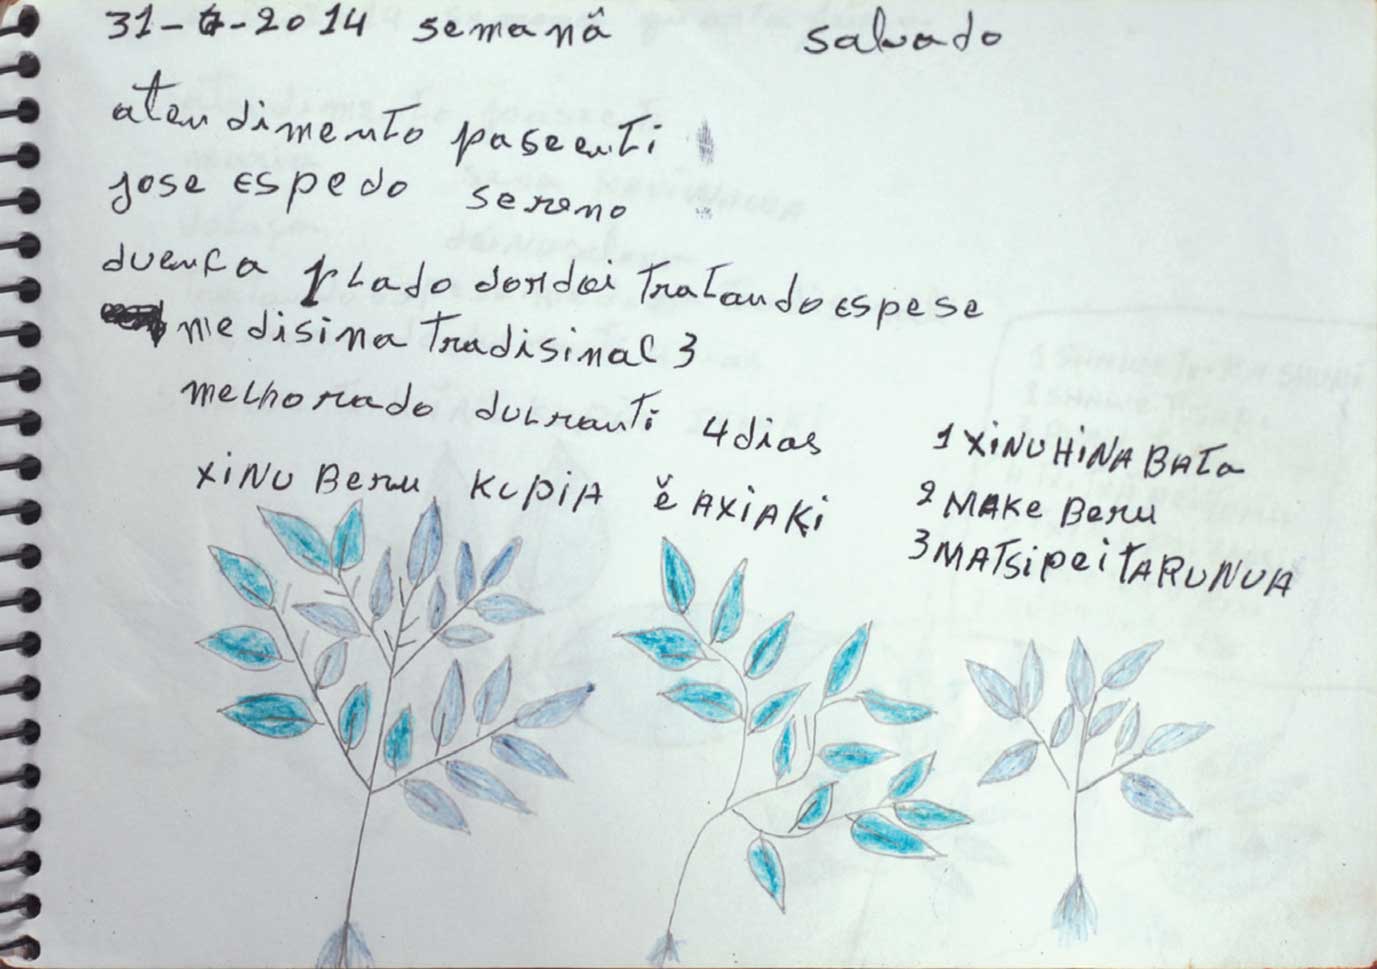 31-6-2014 semanã salvado
atendimento paseenti
jose espedo sereno
duença plado dordoi tratando espese
medisina tradisinal 3
melhorado durranti 4 dias
XiNU Beru KUPiA ě AXiAKi
1 XiNUHiNA BATa
2 MAKe Beru
3 MATSipeiTARUNUA